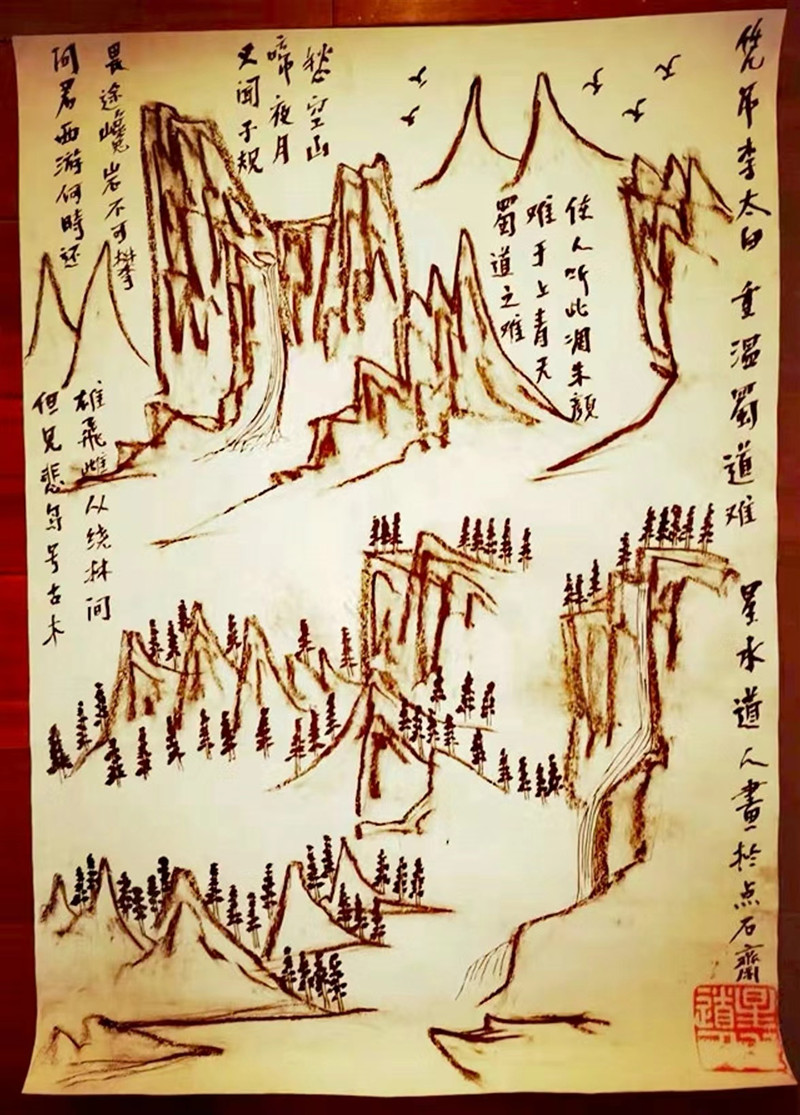 问君西游何時还
畏途巉岩不可攀
但见悲鸟号古木
雄飛雌从绕林间
又闻子规
啼夜月
愁空山
蜀道之难
难于上青天
使人听此凋朱颜
凭吊李太白 重温蜀道难 星水道人畫於点石齋